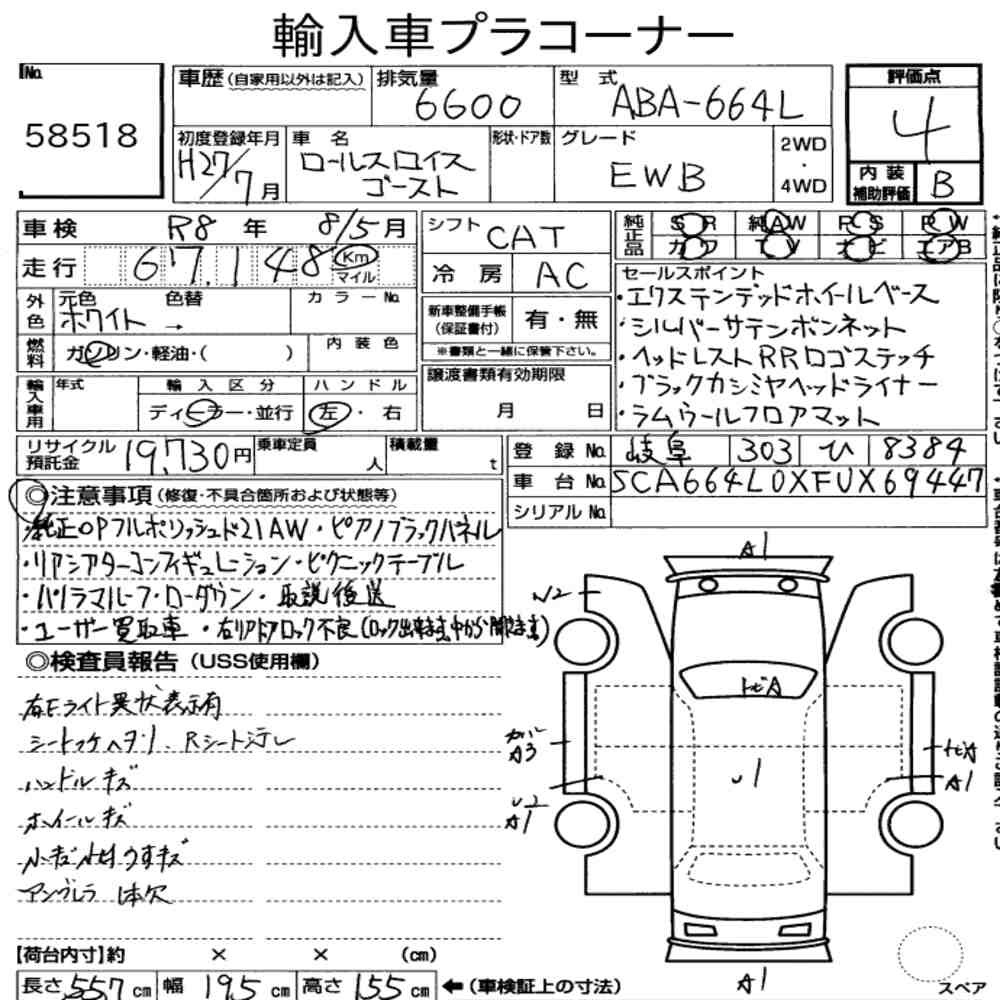 輸入車プラコーナー
No. 58518
車歴(自家用以外は記入) 排気量 6600 型式 ABA-664L
初度登録年月 H27/7月 車名 ロールスロイス ゴースト 形状・ドア数 グレード EWB 2WD・4WD
評価点 4
内装補助評価 B
車検 R8年 8/5月
走行 67,148 Km マイル
外色 元色 ホワイト → 色替 カラーNo.
燃料 ガソリン・軽油・( ) 内装色
輸入車用 年式 輸入区分 ディーラー・並行 ハンドル 左・右
シフト CAT
冷房 AC
新車整備手帳(保証書付) 有・無
※書類と一緒に保管下さい。
譲渡書類有効期限
月 日
純正品 SR 純AW PS PW
カワ TV ナビ エアB
セールスポイント
・エクステンデッドホイールベース
・シルバーサテンボンネット
・ヘッドレストRRロゴステッチ
・ブラックカシミヤヘッドライナー
・ラムウールフロアマット
リサイクル預託金 19,730円 乗車定員 人 積載量 t
登録No. 岐阜 303 ひ 8384
車台No. SCA664L0XFUX69447
シリアルNo.
◎注意事項(修復・不具合箇所および状態等)
・純正OPフルポリッシュド21AW・ピアノブラックパネル
・リアシアターコンフィギュレーション・ピクニックテーブル
・パノラマルーフ・ローダウン・取説後送
・ユーザー買取車・右リアドアロック不良(ロック出来ます中から開きます)
◎検査員報告(USS使用欄)
右Fライト異状表示有
シートスケヘタリ、Rシート汚レ
ハンドルキズ
ホイールキズ
小キズ小凹うすキズ
アンブレラ 1本欠
A1
W2
トビA
カベル
A3
U1
トビA
A1
U2
A1
A1
スペア
【荷台内寸】約 × × (cm)
長さ 557 cm 幅 195 cm 高さ 155 cm ←(車検証上の寸法)